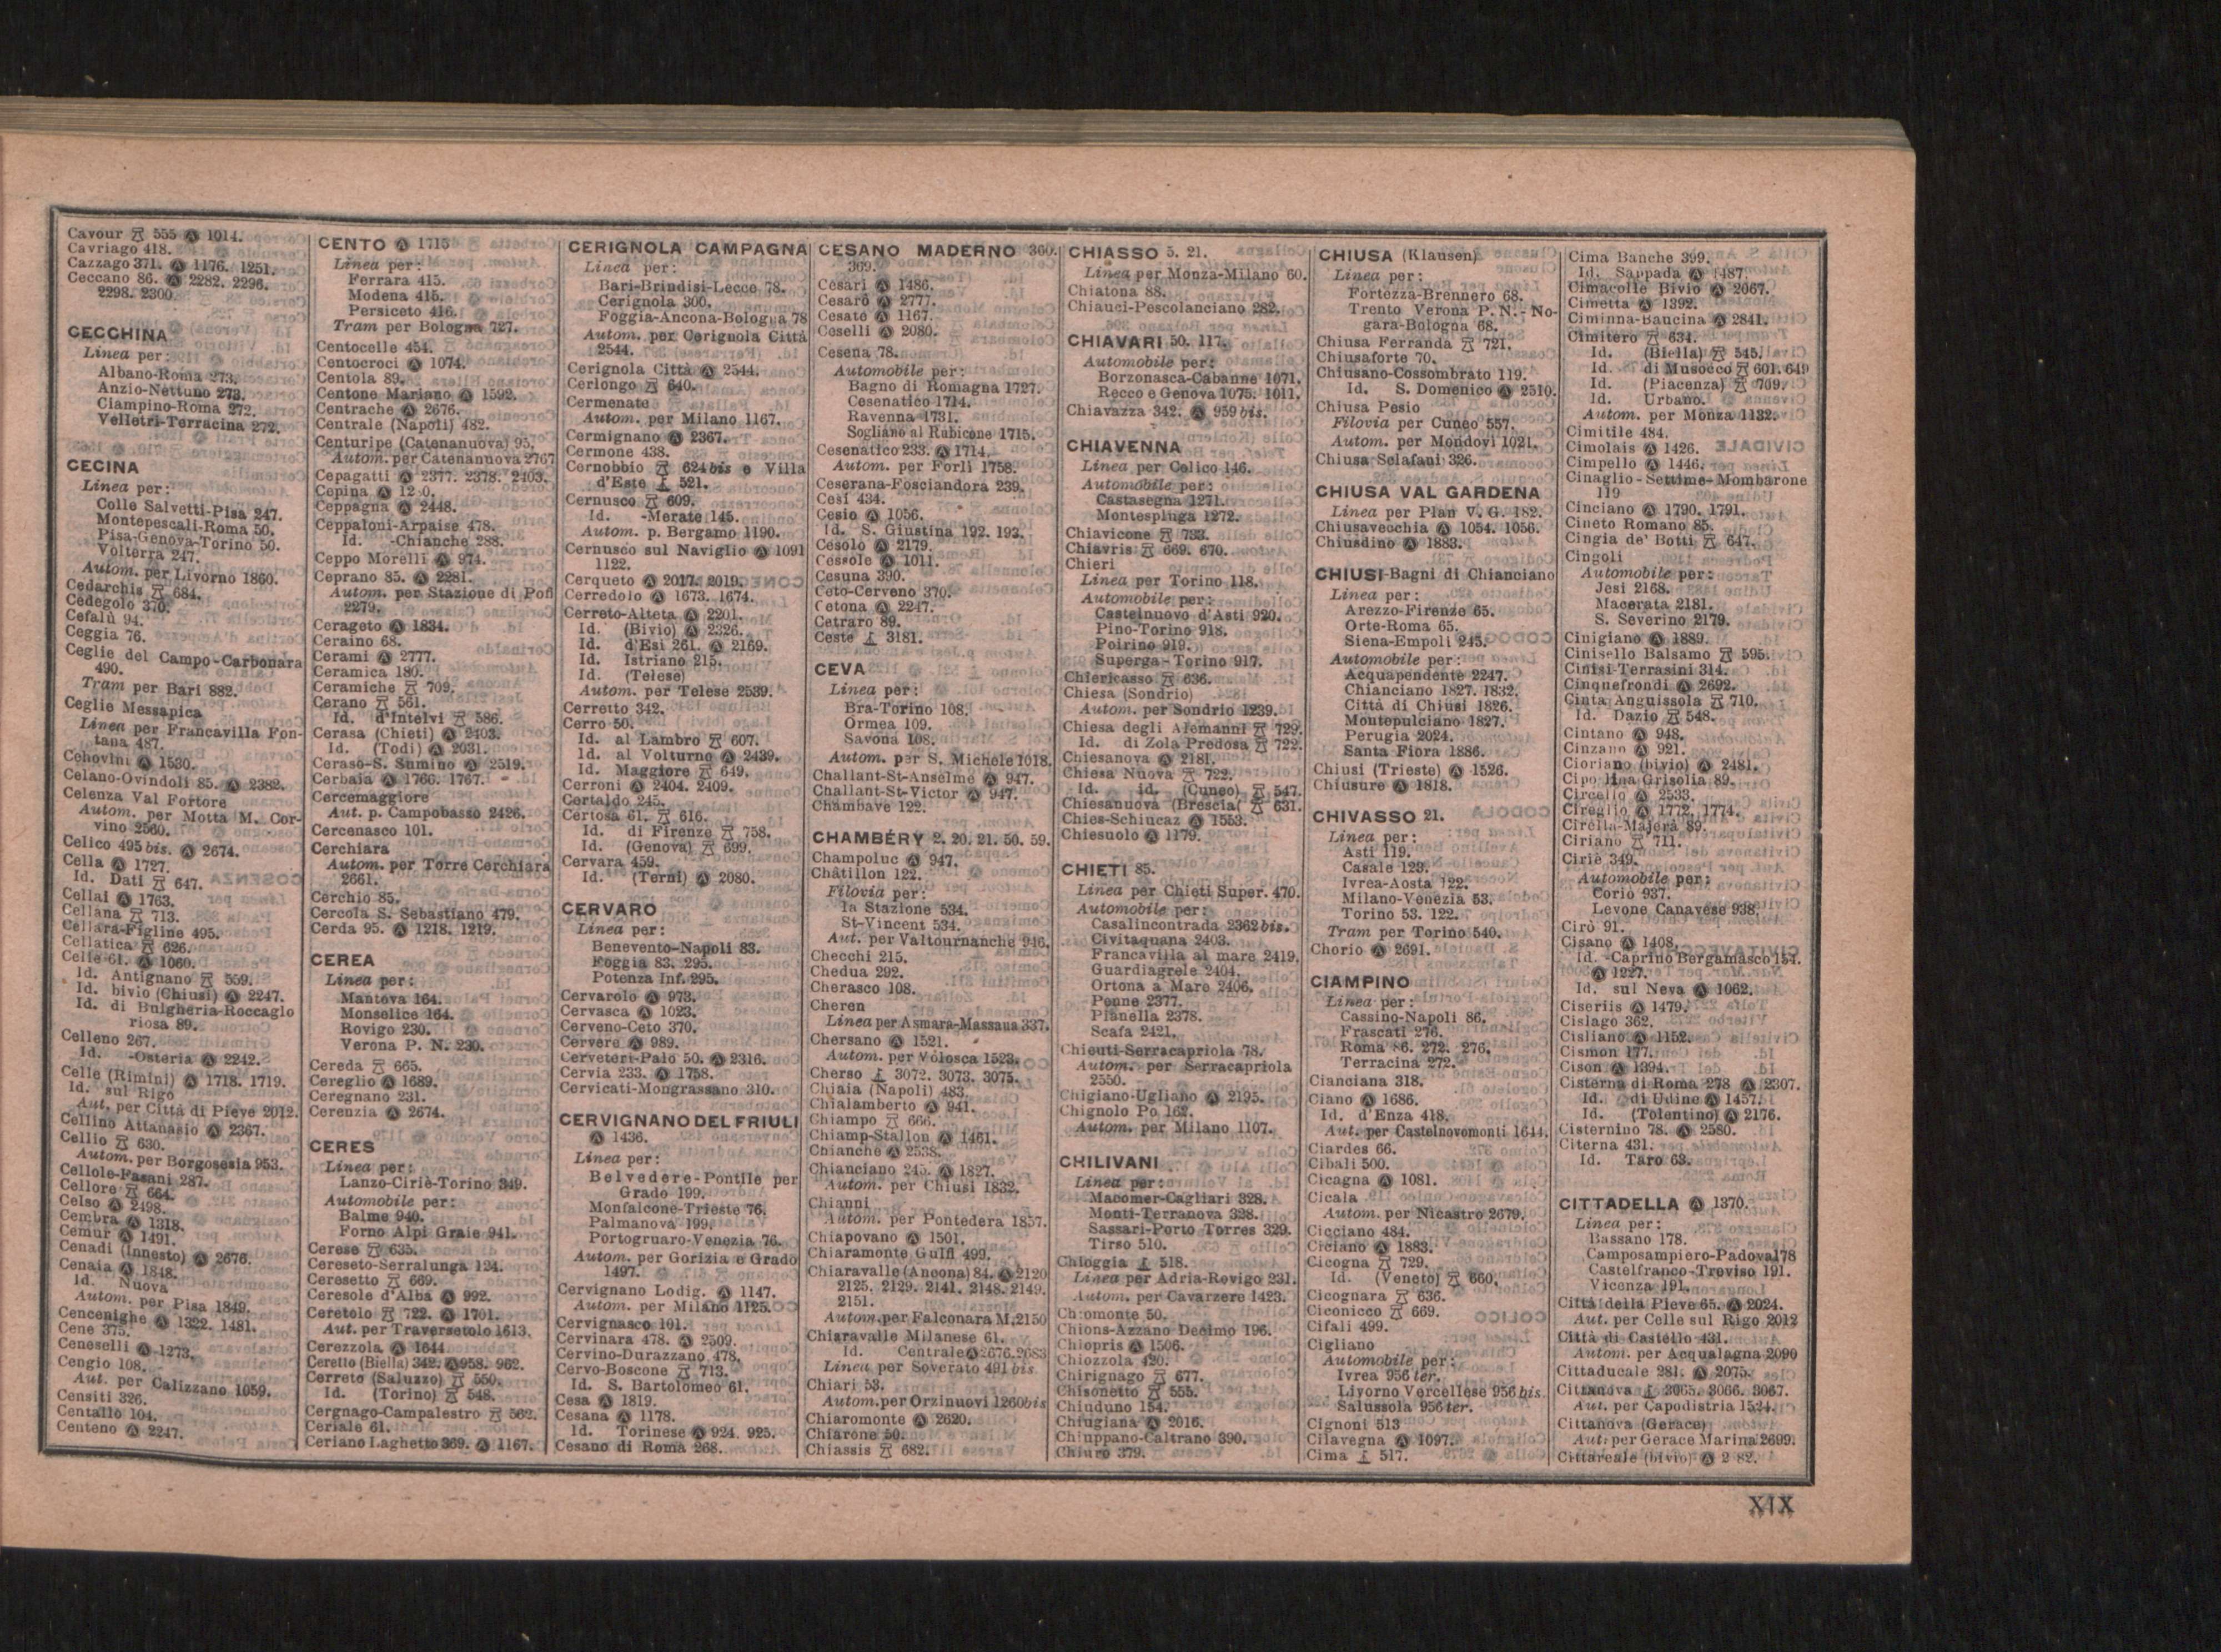 Cavour 555 Ⓐ 1014.
Cavriago 418.
Cazzago 371. Ⓐ 1176. 1251.
Ceccano 86. Ⓐ 2282. 2296.
2298. 2300.
CECCHINA
Linea per:
Albano-Roma 273.
Anzio-Nettuno 273.
Ciampino-Roma 272.
Velletri-Terracina 272.
CECINA
Linea per:
Colle Salvetti-Pisa 247.
Montepescali-Roma 50.
Pisa-Genova-Torino 50.
Volterra 247.
Autom. per Livorno 1860.
Cedarchis 684.
Cedegolo 370.
Cefalù 94.
Ceggia 76.
Ceglie del Campo-Carbonara
490.
Tram per Bari 882.
Ceglie Messapica
Linea per Francavilla Fon-
tana 487.
Cehovini Ⓐ 1530.
Celano-Ovindoli 85. Ⓐ 2382.
Celenza Val Fortore
Autom. per Motta M. Cor-
vino 2560.
Celico 495 bis. Ⓐ 2674.
Cella Ⓐ 1727.
Id. Dati 647.
Cellai Ⓐ 1763.
Cellana 713.
Cellara-Figline 495.
Cellatica 626.
Celle 61. Ⓐ 1060.
Id. Antignano 559.
Id. bivio (Chiusi) Ⓐ 2247.
Id. di Bulgheria-Roccaglo
riosa 89.
Celleno 267.
Id. -Osteria Ⓐ 2242.
Celle (Rimini) Ⓐ 1718. 1719.
Id. sul Rigo
Aut. per Città di Pieve 2012.
Cellino Attanasio Ⓐ 2367.
Cellio 630.
Autom. per Borgosesia 953.
Cellole-Fasani 287.
Cellore 664.
Celso Ⓐ 2498.
Cembra Ⓐ 1318.
Cemur Ⓐ 1491.
Cenadi (Innesto) Ⓐ 2676.
Cenaia Ⓐ 1848.
Id. Nuova
Autom. per Pisa 1849.
Cencenighe Ⓐ 1322. 1481.
Cene 375.
Ceneselli Ⓐ 1273.
Cengio 108.
Aut. per Calizzano 1059.
Censiti 326.
Centallo 104.
Centeno Ⓐ 2247.
CENTO Ⓐ 1715
Linea per:
Ferrara 415.
Modena 415.
Persiceto 416.
Tram per Bologna 727.
Centocelle 454.
Centocroci Ⓐ 1074.
Centola 89.
Centone Mariano Ⓐ 1592.
Centrache Ⓐ 2676.
Centrale (Napoli) 482.
Centuripe (Catenanuova) 95.
Autom. per Catenanuova 2767
Cepagatti Ⓐ 2377. 2378. 2403.
Cepina Ⓐ
Ceppagna Ⓐ 2448.
Ceppaloni-Arpaise 478.
Id. -Chianche 288.
Ceppo Morelli Ⓐ 974.
Ceprano 85. Ⓐ 2281.
Autom. per Stazione di Pofi
2279.
Cerageto Ⓐ 1834.
Ceraino 68.
Cerami Ⓐ 2777.
Ceramica 180.
Ceramiche 709.
Cerano 561.
Id. d'Intelvi 586.
Cerasa (Chieti) Ⓐ 2403.
Id. (Todi) Ⓐ 2031.
Ceraso-S. Sumino Ⓐ 2519.
Cerbaia Ⓐ 1766. 1767.
Cercemaggiore
Aut. p. Campobasso 2426.
Cercenasco 101.
Cerchiara
Autom. per Torre Cerchiara
2661.
Cerchio 85.
Cercola S. Sebastiano 479.
Cerda 95. Ⓐ 1218. 1219.
CEREA
Linea per:
Mantova 164.
Monselice 164.
Rovigo 230.
Verona P. N. 230.
Cereda 665.
Cereglio Ⓐ 1689.
Ceregnano 231.
Cerenzia Ⓐ 2674.
CERES
Linea per:
Lanzo-Ciriè-Torino 349.
Automobile per:
Balme 940.
Forno Alpi Graie 941.
Cerese 635.
Cereseto-Serralunga 124.
Ceresetto 669.
Ceresole d'Alba Ⓐ 992.
Ceretolo 722. Ⓐ 1701.
Aut. per Traversetolo 1613.
Cerezzola Ⓐ 1644.
Ceretto (Biella) 342. Ⓐ 958. 962.
Cerreto (Saluzzo) 550.
Id. (Torino) 548.
Cergnago-Campalestro 562.
Ceriale 61.
Ceriano Laghetto 369. Ⓐ 1167.
CERIGNOLA CAMPAGNA
Linea per:
Bari-Brindisi-Lecce 78.
Cerignola 300.
Foggia-Ancona-Bologna 78
Autom. per Cerignola Città
2544.
Cerignola Città Ⓐ 2544.
Cerlongo 640.
Cermenate
Autom. per Milano 1167.
Cermignano Ⓐ 2367.
Cermone 438.
Cernobbio 624 bis e Villa
d'Este 521.
Cernusco 609.
Id. -Merate 145.
Autom. p. Bergamo 1190.
Cernusco sul Naviglio Ⓐ 1091
1122.
Cerqueto Ⓐ 2017. 2019.
Cerredolo Ⓐ 1673. 1674.
Cerreto-Alteta Ⓐ 2201.
Id. (Bivio) Ⓐ 2326.
Id. d'Esi 261. Ⓐ 2169.
Id. Istriano 215.
Id. (Telese)
Autom. per Telese 2539.
Cerretto 342.
Cerro 50.
Id. al Lambro 607.
Id. al Volturno Ⓐ 2439.
Id. Maggiore 649.
Cerroni Ⓐ 2404. 2409.
Certaldo 245.
Certosa 61. 616.
Id. di Firenze 758.
Id. (Genova) 699.
Cervara 459.
Id. (Terni) Ⓐ 2080.
CERVARO
Linea per:
Benevento-Napoli 83.
Foggia 83. 295.
Potenza Inf. 295.
Cervarolo Ⓐ 973.
Cervasca Ⓐ 1023.
Cerveno-Ceto 370.
Cervere Ⓐ 989.
Cerveteri-Palo 50. Ⓐ 2316.
Cervia 233. Ⓐ 1758.
Cervicati-Mongrassano 310.
CERVIGNANO DEL FRIULI
Ⓐ 1436.
Linea per:
Belvedere-Pontile per
Grado 199.
Monfalcone-Trieste 76.
Palmanova 199.
Portogruaro-Venezia 76.
Autom. per Gorizia e Grado
1497.
Cervignano Lodig. Ⓐ 1147.
Autom. per Milano 1125.
Cervignasco 101.
Cervinara 478. Ⓐ 2509.
Cervino-Durazzano 478.
Cervo-Boscone 713.
Id. S. Bartolomeo 61.
Cesa Ⓐ 1819.
Cesana Ⓐ 1178.
Id. Torinese Ⓐ 924. 925.
Cesano di Roma 268.
CESANO MADERNO 360.
369.
Cesari Ⓐ 1486.
Cesarò Ⓐ 2777.
Cesato Ⓐ 1167.
Ceselli Ⓐ 2080.
Cesena 78.
Automobile per:
Bagno di Romagna 1727.
Cesenatico 1714.
Ravenna 1731.
Sogliano al Rubicone 1715.
Cesenatico 233. Ⓐ 1714.
Autom. per Forlì 1758.
Ceserana-Fosciandora 239.
Cesi 434.
Cesio Ⓐ 1056.
Id. S. Giustina 192. 193.
Cesolo Ⓐ 2179.
Cessole Ⓐ 1011.
Cesuna 390.
Ceto-Cerveno 370.
Cetona Ⓐ 2247.
Cetraro 89.
Ceste 3181.
CEVA
Linea per:
Bra-Torino 108.
Ormea 109.
Savona 108.
Autom. per S. Michele 1018.
Challant-St-Anselme Ⓐ 947.
Challant-St-Victor Ⓐ 947.
Chambave 122.
CHAMBÉRY 2. 20. 21. 50. 59.
Champoluc Ⓐ 947.
Châtillon 122.
Filovia per:
la Stazione 534.
St-Vincent 534.
Aut. per Valtournanche 946.
Checchi 215.
Chedua 292.
Cherasco 108.
Cheren
Linea per Asmara-Massaua 337.
Chersano Ⓐ 1521.
Autom. per Volosca 1523.
Cherso 3072. 3073. 3075.
Chiaia (Napoli) 483.
Chialamberto Ⓐ 941.
Chiampo 666.
Chiamp-Stallon Ⓐ 1461.
Chianche Ⓐ 2538.
Chianciano 245. Ⓐ 1827.
Autom. per Chiusi 1832.
Chianni
Autom. per Pontedera 1857.
Chiapovano Ⓐ 1501.
Chiaramonte Gulfi 499.
Chiaravalle (Ancona) 84. Ⓐ 2120
2125. 2129. 2141. 2148. 2149.
2151.
Autom. per Falconara M. 2150
Chiaravalle Milanese 61.
Id. Centrale Ⓐ 2676. 2683
Linea per Soverato 491 bis
Chiari 53.
Autom. per Orzinuovi 1260 bis
Chiaromonte Ⓐ 2620.
Chiarone 50.
Chiassis 682.
CHIASSO 5. 21.
Linea per Monza-Milano 60.
Chiatona 88.
Chiauci-Pescolanciano 282.
CHIAVARI 50. 117.
Automobile per:
Borzonasca-Cabanne 1071.
Recco e Genova 1075. 1011.
Chiavazza 342. Ⓐ 959 bis.
CHIAVENNA
Linea per Colico 146.
Automobile per:
Castasegna 1271.
Montespluga 1272.
Chiavicone 733.
Chiavris 669. 670.
Chieri
Linea per Torino 118.
Automobile per:
Castelnuovo d'Asti 920.
Pino-Torino 918.
Poirino 919.
Superga-Torino 917.
Chiericasso 636.
Chiesa (Sondrio)
Autom. per Sondrio 1239.
Chiesa degli Alemanni 729.
Id. di Zola Predosa 722.
Chiesanova Ⓐ 2181.
Chiesa Nuova 722.
Id. id. (Cuneo) 547.
Chiesanuova (Brescia( 631.
Chies-Schiucaz Ⓐ 1553.
Chiesuolo Ⓐ 1179.
CHIETI 85.
Linea per Chieti Super. 470.
Automobile per:
Casalincontrada 2362 bis.
Civitaquana 2403.
Francavilla al mare 2419.
Guardiagrele 2404.
Ortona a Mare 2406.
Penne 2377.
Pianella 2378.
Scafa 2421.
Chieuti-Serracapriola 78.
Autom. per Serracapriola
2550.
Chigiano-Ugliano Ⓐ 2195.
Chignolo Po 162.
Autom. per Milano 1107.
CHILIVANI
Linea per:
Macomer-Cagliari 328.
Monti-Terranova 328.
Sassari-Porto Torres 329.
Tirso 510.
Chioggia 518.
Linea per Adria-Rovigo 231.
Autom. per Cavarzere 1423.
Chiomonte 50.
Chions-Azzano Decimo 196.
Chiopris Ⓐ 1506.
Chiozzola 420.
Chirignago 677.
Chisonetto 555.
Chiuduno 154.
Chiugiana Ⓐ 2016.
Chiuppano-Caltrano 390.
Chiuro 379.
CHIUSA (Klausen)
Linea per:
Fortezza-Brennero 68.
Trento Verona P. N.-No-
gara-Bologna 68.
Chiusa Ferranda 721.
Chiusaforte 70.
Chiusano-Cossombrato 119.
Id. S. Domenico Ⓐ 2510.
Chiusa Pesio
Filovia per Cuneo 557.
Autom. per Mondovì 1021.
Chiusa Sclafani 326.
CHIUSA VAL GARDENA
Linea per Plan V. G. 182.
Chiusavecchia Ⓐ 1054. 1056.
Chiusdino Ⓐ 1883.
CHIUSI-Bagni di Chianciano
Linea per:
Arezzo-Firenze 65.
Orte-Roma 65.
Siena-Empoli 245.
Automobile per:
Acquapendente 2247.
Chianciano 1827. 1832.
Città di Chiusi 1826.
Montepulciano 1827.
Perugia 2024.
Santa Fiora 1886.
Chiusi (Trieste) Ⓐ 1526.
Chiusure Ⓐ 1818.
CHIVASSO 21.
Linea per:
Asti 119.
Casale 123.
Ivrea-Aosta 122.
Milano-Venezia 53.
Torino 53. 122.
Tram per Torino 540.
Chorio Ⓐ 2691.
CIAMPINO
Linea per:
Cassino-Napoli 86.
Frascati 276.
Roma 86. 272. 276.
Terracina 272.
Cianciana 318.
Ciano Ⓐ 1686.
Id. d'Enza 418.
Aut. per Castelnovomonti 1644.
Ciardes 66.
Cibali 500.
Cicagna Ⓐ 1081.
Cicala
Autom. per Nicastro 2679.
Cicciano 484.
Ciciano Ⓐ 1883.
Cicogna 729.
Id. (Veneto) 660.
Cicognara 636.
Ciconicco 669.
Cifali 499.
Cigliano
Automobile per:
Ivrea 956 ter.
Livorno Vercellese 956 bis.
Salussola 956 ter.
Cignoni 513
Cilavegna Ⓐ 1097.
Cima 517.
Cima Banche 399.
Id. Sappada Ⓐ 1487.
Cimacolle Bivio Ⓐ 2067.
Cimetta Ⓐ 1392.
Ciminna-Baucina Ⓐ 2841.
Cimitero 634.
Id. (Biella) 545.
Id. di Musocco 601. 649
Id. (Piacenza) 709.
Id. Urbano.
Autom. per Monza 1132.
Cimitile 484.
Cimolais Ⓐ 1426.
Cimpello Ⓐ 1446.
Cinaglio-Settime-Mombarone
119
Cinciano Ⓐ 1790. 1791.
Cineto Romano 85.
Cingia de' Botti 647.
Cingoli
Automobile per:
Jesi 2168.
Macerata 2181.
S. Severino 2179.
Cinigiano Ⓐ 1889.
Cinisello Balsamo 595.
Cinisi-Terrasini 314.
Cinquefrondi Ⓐ 2692.
Cinta Anguissola 710.
Id. Dazio 548.
Cintano Ⓐ 948.
Cinzano Ⓐ 921.
Cioriano (bivio) Ⓐ 2481.
Cipollina Grisolia 89.
Circello Ⓐ 2533.
Cireglio Ⓐ 1772. 1774.
Cirella-Majerà 89.
Ciriano 711.
Ciriè 349.
Automobile per:
Corio 937.
Levone Canavese 938.
Cirò 91.
Cisano Ⓐ 1408.
Id. -Caprino Bergamasco 154.
Ⓐ 1227.
Id. sul Neva Ⓐ 1062.
Ciseriis Ⓐ 1479.
Cislago 362.
Cisliano Ⓐ 1152.
Cismon 177.
Cison Ⓐ 1394.
Cisterna di Roma 278 Ⓐ 2307.
Id. di Udine Ⓐ 1457.
Id. (Tolentino) Ⓐ 2176.
Cisternino 78. Ⓐ 2580.
Citerna 431.
Id. Taro 63.
CITTADELLA Ⓐ 1370.
Linea per:
Bassano 178.
Camposampiero-Padova 178
Castelfranco-Treviso 191.
Vicenza 191.
Città della Pieve 65. Ⓐ 2024.
Aut. per Celle sul Rigo 2012
Città di Castello 431.
Autom. per Acqualagna 2090
Cittaducale 281. Ⓐ 2075.
Cittanova 3065. 3066. 3067.
Aut. per Capodistria 1524.
Cittanova (Gerace)
Aut. per Gerace Marina 2699.
Cittareale (bivio) Ⓐ
XIX